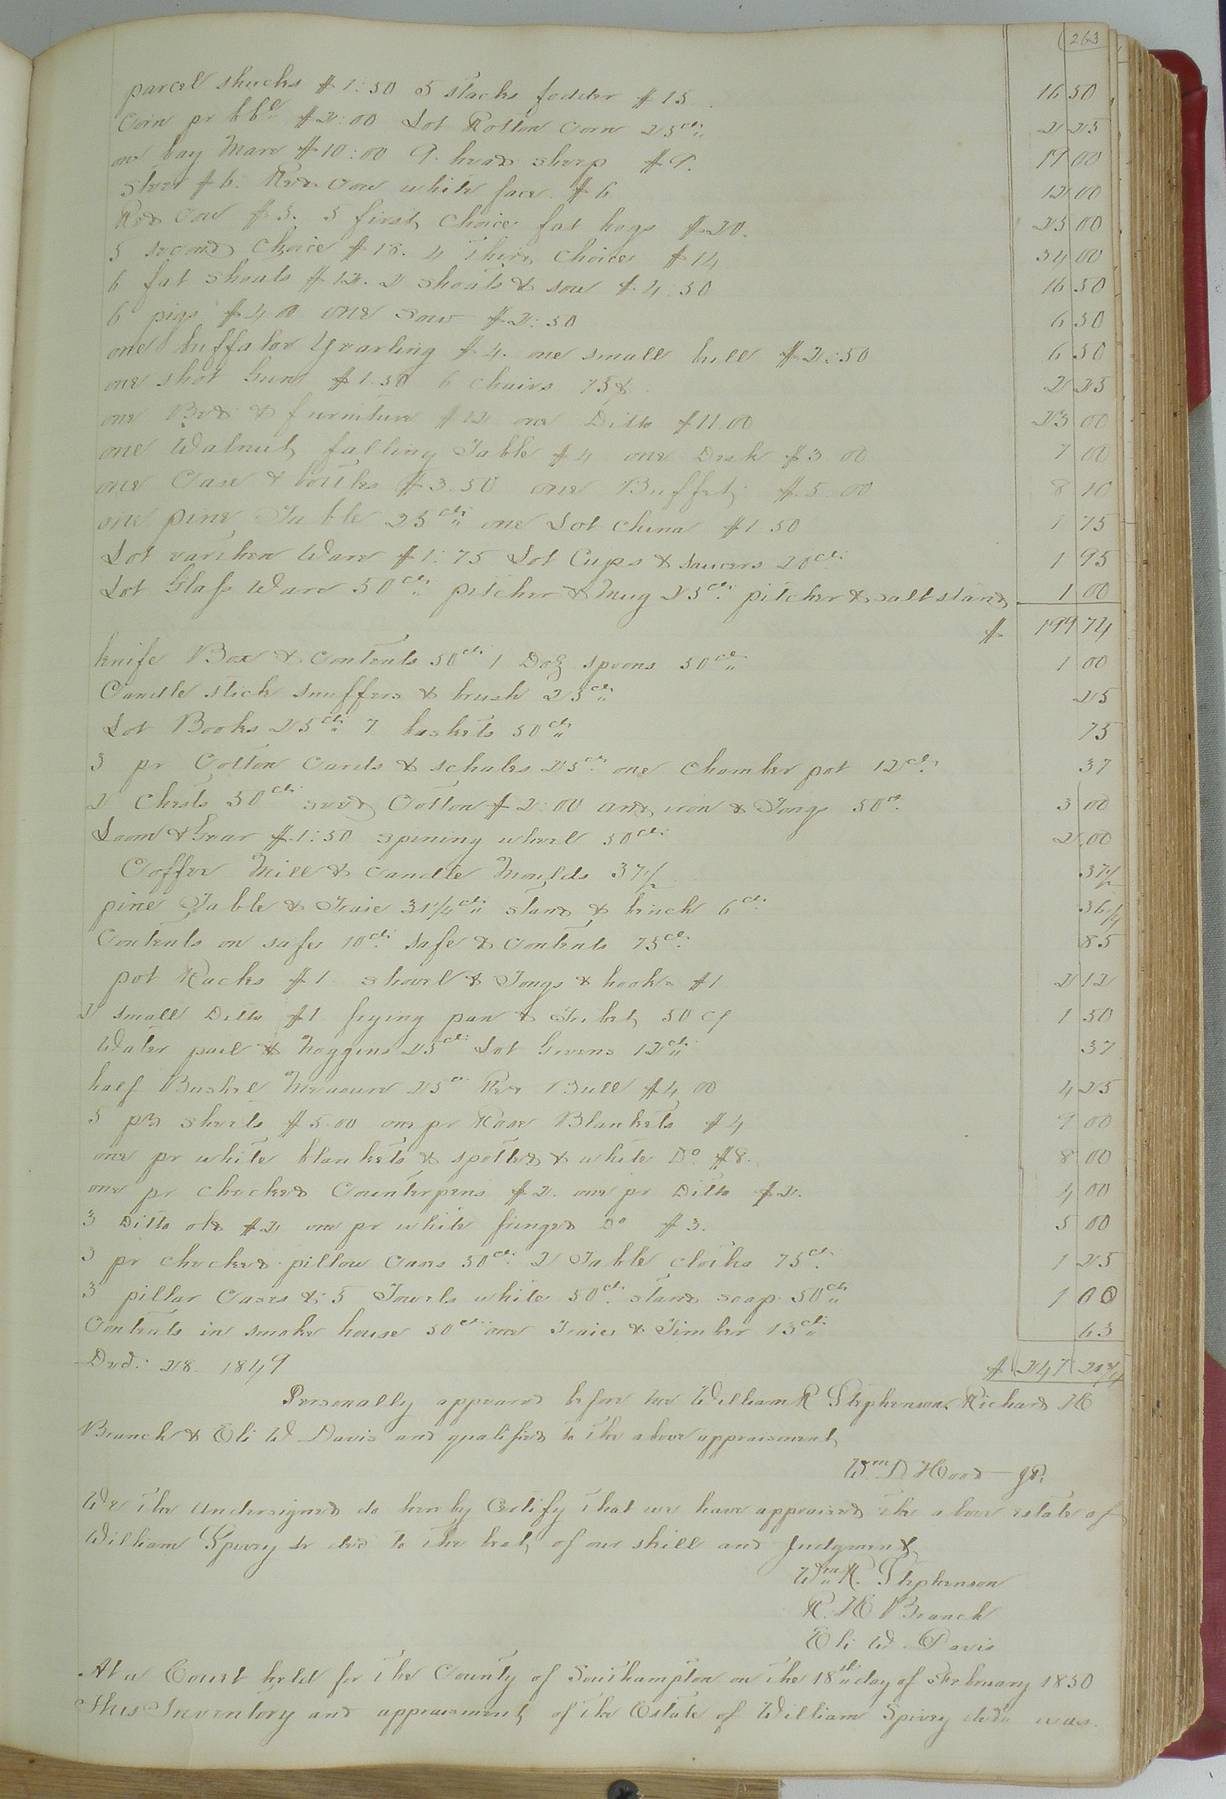 263
parcel shucks $1:50 5 stacks fodder $15 16 50
Corn pr bbl $2:00 Lot Rotton Corn 25cts 2 25
one bay Mare $10:00 9 head sheep $9. 19 00
Steer $6. Red Cow white face $6 12 00
Red Cow $5. 5 first Choice fat hogs $20. 25 00
5 second Choice $18. 4 Third Choice $14 34 00
6 fat shoats $12. 2 shoats & sow $4.50 16 50
6 pigs $4.00 one sow $2:50 6 50
one buffalow Yearling $4. one small bull $2:50 6 50
one shot Gun $1.50 6 chairs 75¢ 2 25
one Bed & furniture $12 one Ditto $11.00 23 00
one Walnut falling Table $4 one Desk $3 00 7 00
one Case & bottles $3.50 one Buffet $5.00 8 10
one pine Table 25cts one Lot China $1 50 1 75
Lot earthen Ware $1:75 Lot Cups & Saucers 20cts 1 95
Lot Glass Ware 50cts pitcher & Mug 25cts pitcher & salt stand 1 00
$ 199 74
knife Box & Contents 50cts 1 Doz spoons 50cts 1 00
Candle stick snuffers & brush 25cts 25
Lot Books 25cts 7 baskets 50cts 75
3 pr Cotton Cards & schales 25cts one chamber pot 12cts 37
2 Chests 50cts seed Cotton $2:00 and iron & Tongs 50cts 3 00
Loom & Gear $1:50 spining wheel 50cts 2 00
Coffee Mill & Candle Moulds 37½ 37½
pine Table & Traie 31¼cts stand & binch 6cts 36¼
Contents on safe 10cts safe & Contents 75cts 85
pot Racks $1 shovel & Tongs & hooks $1 2 12
2 small Ditto $1 frying pan & Tribet 50 cts 1 50
Water pail & Noggins 25cts Lot Givens 12cts 37
half Bushel Measure 25cts Red Bull $4,00 4 25
5 pr sheets $5.00 one pr Rose Blankets $4 9 00
one pr white blankets & spotted & white Do $8. 8 00
one pr checked Counterpens $2. one pr Ditto $2. 4 00
3 Ditto old $2 one pr white fringed Do $3. 5 00
3 pr checked pillow Cases 50cts 2 Table cloths 75cts 1 25
3 pillar Cases & 5 Towels white 50cts stand soap 50cts 1 00
Contents in smoke house 50cts one Traies & Timber 13cts 63
Decd: 28. 1849 $ 247 20¾
Personally appeared before me William R Stephenson, Richard H
Branch & Eli W Davis and qualified to the above appraisment
Wm D. Hood JP.
We the undersigned do hereby Certify that we have appraised the above estate of
William Spivey Sr decd to the best of our skill and Judgment
Wm R. Stephenson
R. H Branch
Eli W Davis
At a Court held for the County of Southampton on the 18th day of February 1850
This Inventory and appraisment of the Estate of William Spivey decd was